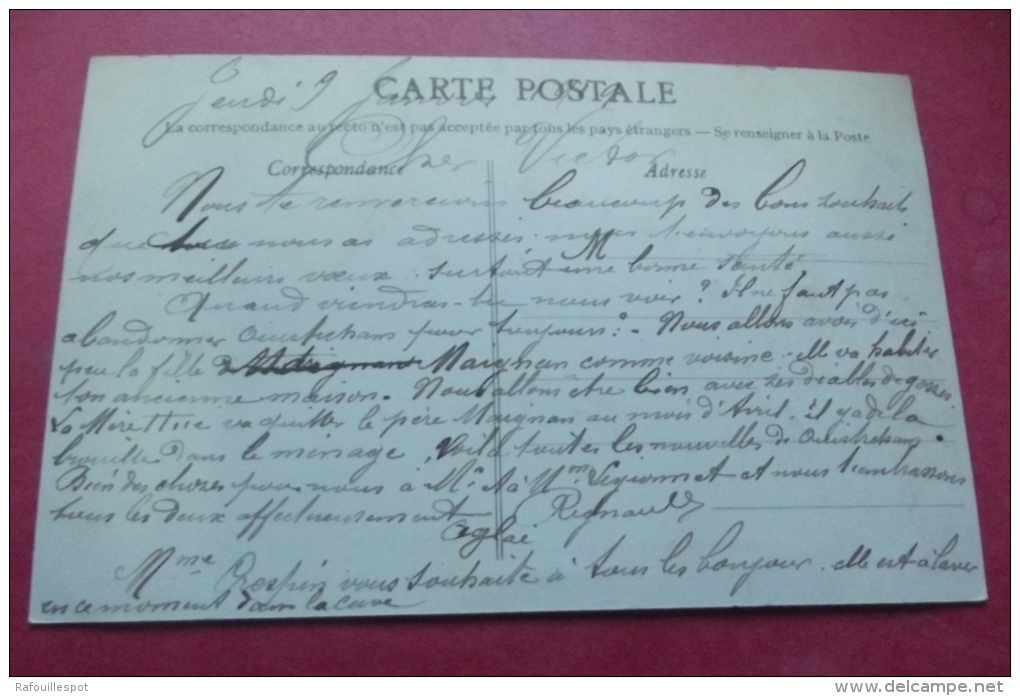 CARTE POSTALE
Jeudi 9 Janvier
La correspondance au recto n'est pas acceptée par tous les pays étrangers — Se renseigner à la Poste
Cher Victor
Correspondance
Adresse
Nous te remercions beaucoup des bons souhaits
que nous as adressés. nous t'envoyons aussi
M
nos meilleurs vœux. surtout une bonne santé
Quand viendras-tu nous voir? Il ne faut pas
abandonner Ouistreham pour toujours. - Nous allons avoir d'ici
peu la fille Maignan comme voisine. elle va habiter
ton ancienne maison. Nous allons être bien avec ses diables de gosses.
La va quitter le père Maignan au mois d'Avril. il y a de la
brouille dans le ménage. voilà toutes les nouvelles de Ouistreham.
Bien des choses pour nous à Mr & à Mme et nous t'embrassons
tous les deux affectueusement
Regnault
Aglaé
Mme Crespin vous souhaite à tous le bonjour. elle est à laver
en ce moment dans la cave
Rafouillespot
delcampe.net